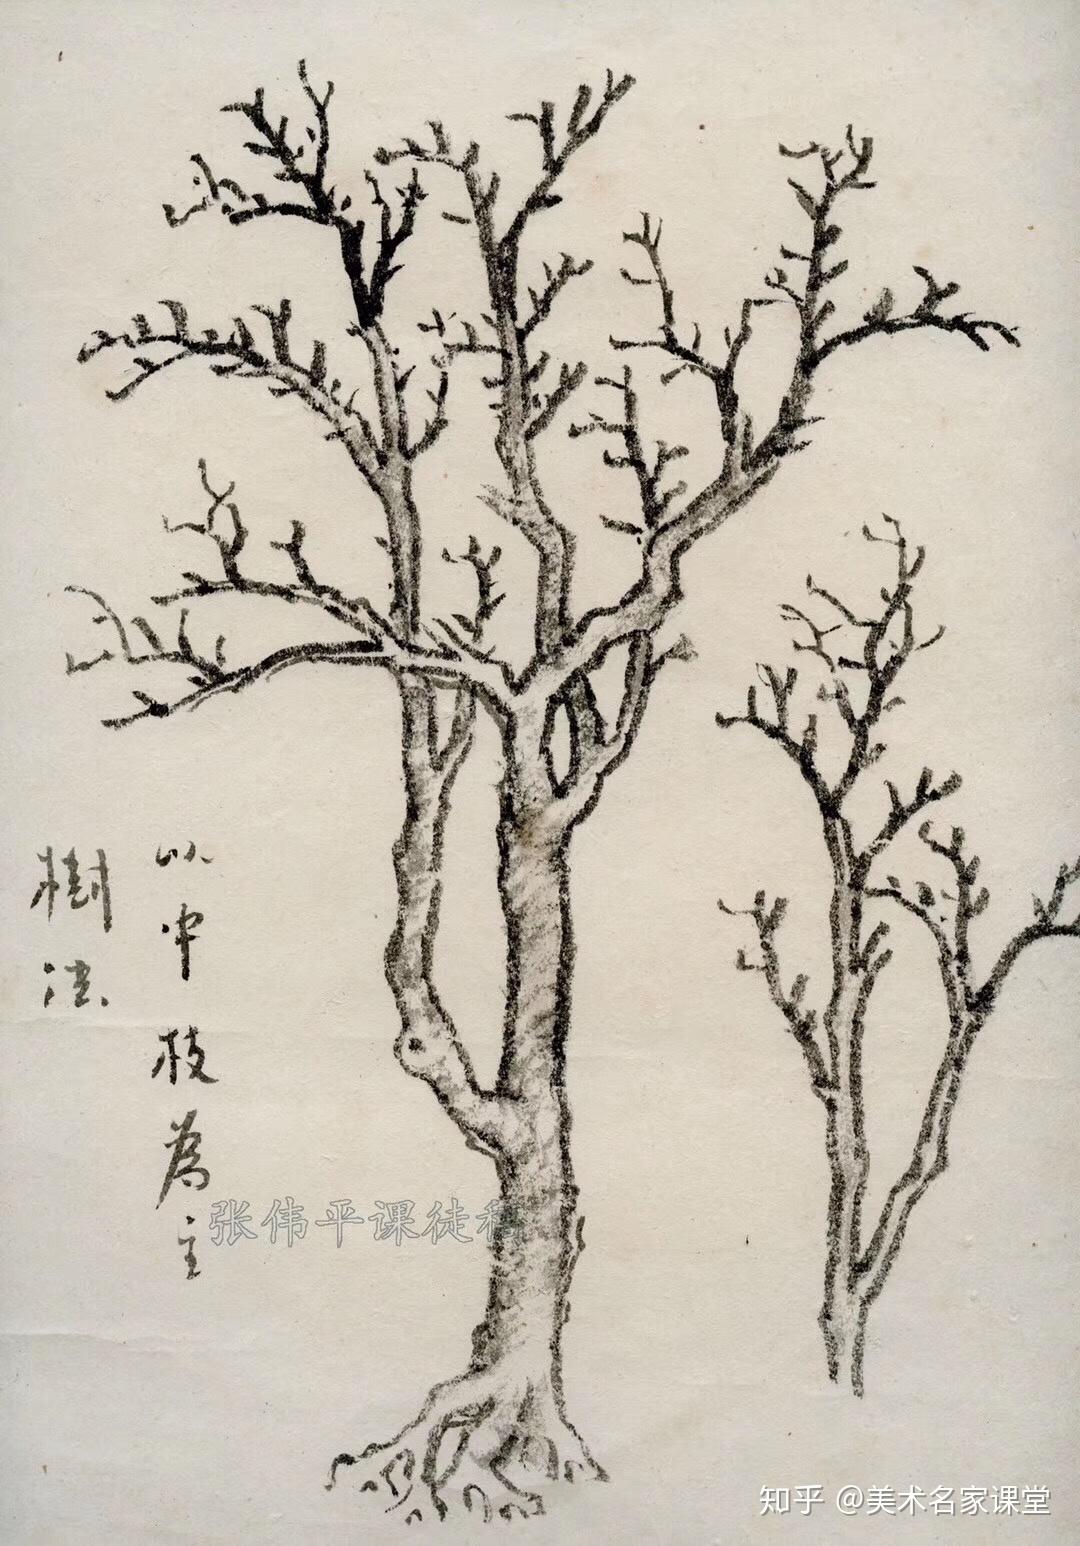 以中枝為主
樹法
张伟平课徒稿
知乎 @美术名家课堂